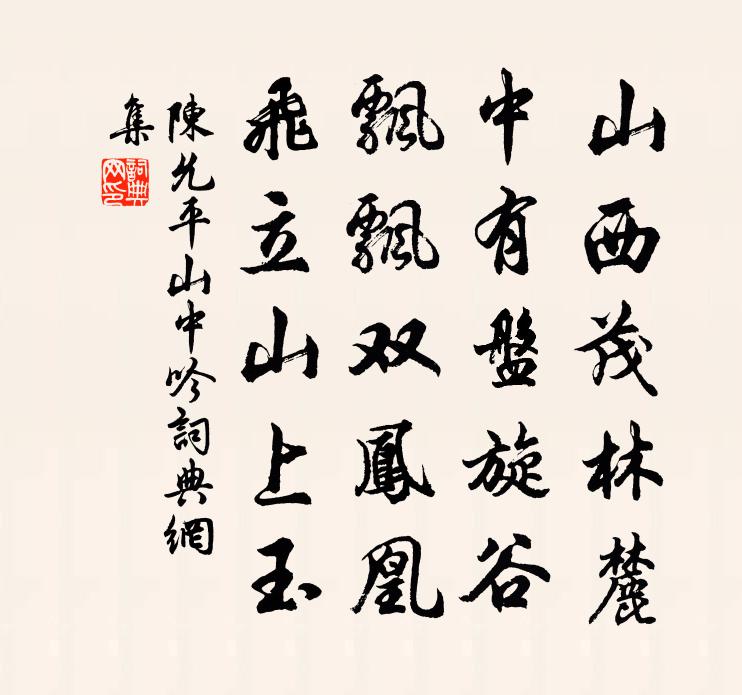 山西茂林麓
中有盤旋谷
飄飄双鳳凰
飛立山上玉
陳允平山中吟詞典網
集
詞典
网印